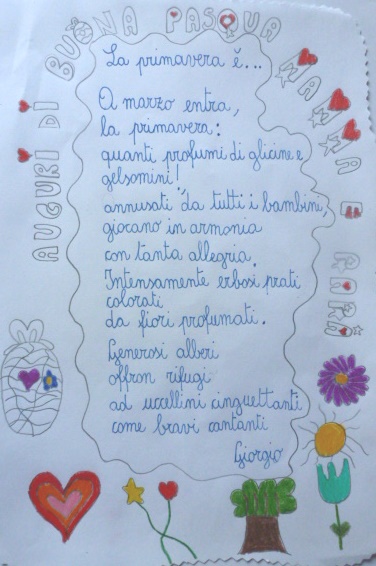 AUGURI DI BUONA PASQUA MAMMA E PAPÀ
La primavera è...
A marzo entra,
la primavera:
quanti profumi di glicine e
gelsomini!
annusati da tutti i bambini,
giocano in armonia
con tanta allegria.
Intensamente erbosi prati
colorati
da fiori profumati.
Generosi alberi
offron rifugi
ad uccellini cinguettanti
come bravi cantanti
Giorgio